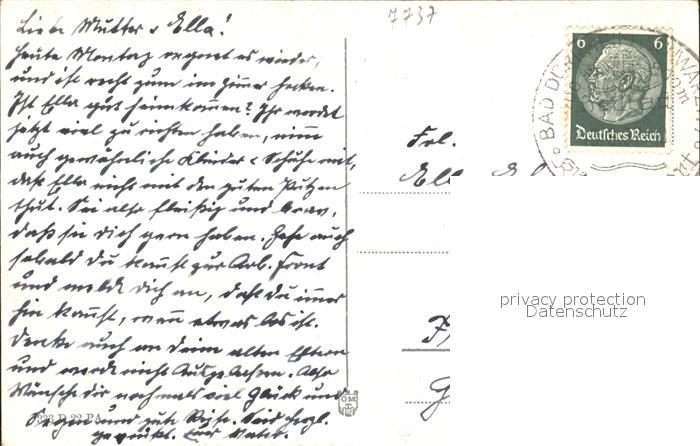 7737
Liebe Mutter u Ella!
Heute Montag regnet es wieder,
und ist recht zum im Zimer hocken.
Ist Ella gut heimkommen? Ihr werdet
jetzt viel zu richten haben, nimm
auch gewöhnliche Kleider u Schuhe mit,
daß Ella nicht mit den guten Putzen
thut. Sei also fleißig und brav,
daß sie dich gern haben. Gehe auch
sobald du kannst zur Arb. Front
und melde dich an, daß du imer
hin kannst, wenn etwas los ist.
Denke auch an deine alten Eltern
und werde nicht ausgelassen. Also
Wünsche dir nochmals viel Glück und
Segen und gute Reise. Seid herzl.
gegrüßt. Euer Vater.
6 6
Deutsches Reich
BAD DÜR
Frl.
Ell
privacy protection
Datenschutz